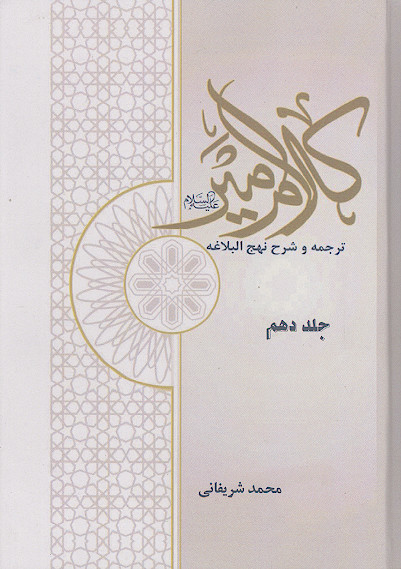 کلام امیر
علیه‌السلام
ترجمه و شرح نهج البلاغه
جلد دهم
محمد شریفانی